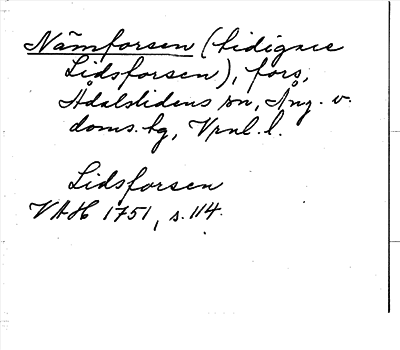 Nämforsen (tidigare
Lidsforsen), fors,
Ådalslidens sn, Ång. v.
doms.hg, Vrnl. l.
Lidsforsen
VAH 1751, s. 114.